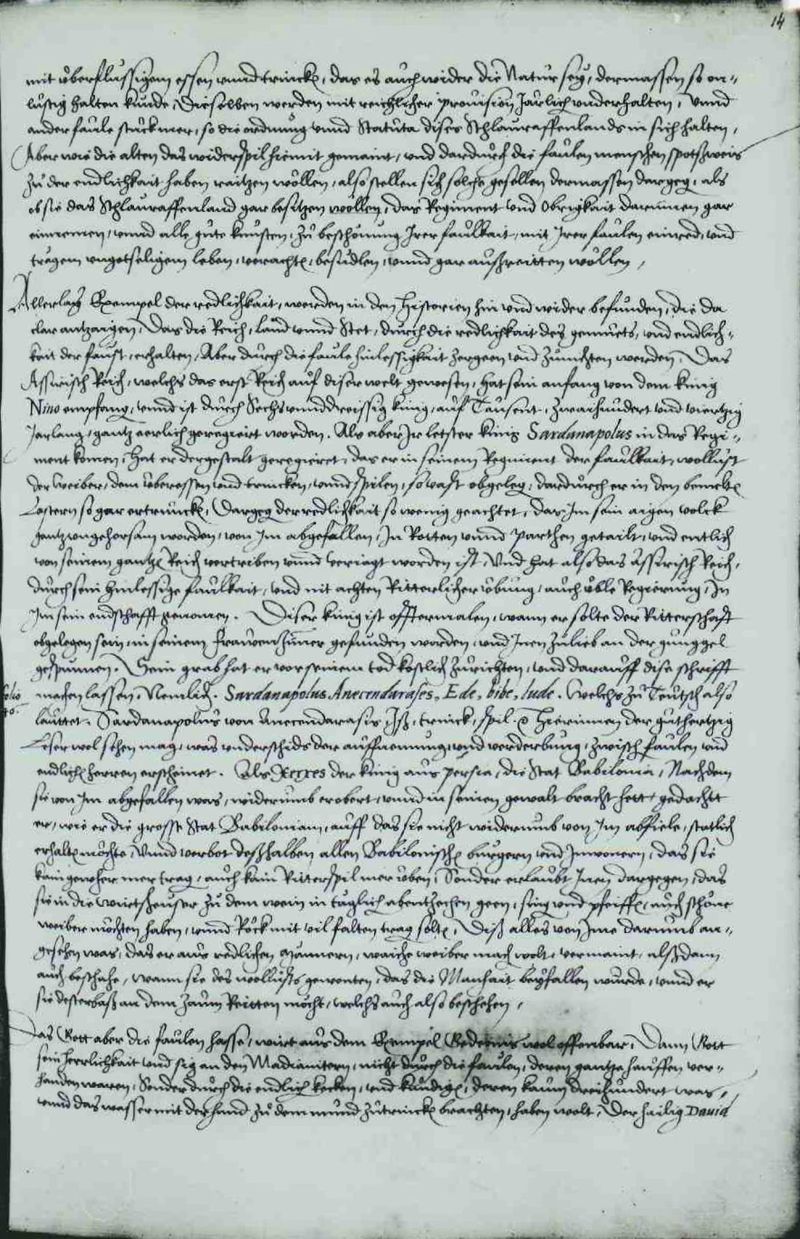 14
mit uberflussigem essen vnnd trincken, das es auch wider die Natur sey, dermassen so on-
lustig halten kunde, Dieselben werden mit reichlicher prouision Järlich vnderhalten, Vnnd
ander faule stuck mer, so die ordnung vnnd Statuta dises Schlauraffenlands in sich halten,
Aber wie die alten das widerspil hiemit gemaint, vnd dardurch die faulen menschen spotsweis
zu der endlichkait haben raitzen wöllen, also stellen sich solche gesellen dermassen dargeg, als
ob sie das Schlauraffenland gar besitzen wöllen, das Regiment vnd Obrigkait darinnen gar
einnemen, vnnd alle gute kunsten, zu beschönung Irer faulkait, mit Irer faulen einred, vnd
tregem vngotseligem leben, verachten, besudlen, vnnd gar ausreitten wöllen,
Allerlay Exempel der redlichkait, werden in den Historien hin vnd wider befunden, die da
clar antzaigen, Das die Reich, land vnnd Stet, durch die redlichkait des gemuets, vnd endlich-
kait der faust, erhalten, Aber durch die faule hinlessigkait zergeen vnd zunichten werden, Das
Assirisch Reich, welchs das erst Reich auf diser welt gewesen, hat sein anfang von dem kunig
Nino empfang, vnnd ist durch Sechs vnnd dreissig kunig, auf Tausent, zwaihundert vnd viertzig
Jar lang, gantz eerlich geregiert worden. Als aber Ir letster kunig Sardanapolus in das Regi-
ment komen, hat er dergestalt geregieret, das er in seinem Regiment der faulkait, wollust
der weiber, dem überessen vnd trincken, vnnd spilen, so vast obgeleg, dardurch er in den bemelten
Lastern so gar ertrunck, Dargeg der redlichkait so wenig geachtet, das Im sein aigen volck
gantz vngehorsam worden, von Im abgefallen, In Rotten vnnd Parthen getailt, vnd entlich
von seinem gantzen Reich vertreiben vnnd veriagt worden ist, Vnd hat also das Assirisch Reich,
durch sein hinlessige faulkait, vnd nit achten Ritterlicher übung, auch üble Regierung, In
Im sein endschafft genomen. Diser kunig ist offtermalen, wann er solte der Ritterschafft
obgelegen sein, in seinem frauenzimer gefunden worden, vnd Inen zulieb an der gunggel
gespunnen. Sein grab hat er vor seinem tod kostlich zurichten, vnd darauff dise schrifft
machen lassen, Nemlich. Sardanapolus Anecendarases, Ede, bibe, lude. Welchs zu Teutsch also
lauttet. Sardanapolus von Anecendarasis, Iss, trinck, spil. Hierinnen der guthertzig
Leser wol sehen mag, was vnderschids der auffnemung vnd verderbung, zwischen faulen vnd
endlichen herren erscheinet. Als Xerxes der kunig aus Persia, die Stat Babilonia, Nachdem
sie von Im abgefallen was, widerumb erobert, vnnd in seinen gewalt bracht hett, gedacht
er, wie er die grosse Stat Babiloniam, auff das sie nicht widerumb von Im abfiele, statlich
erhalten möchte, Vnnd verbot desshalben allen Babilonischen burgern vnd Innwonern, das sie
kain gewher mer trag, auch kain Ritterspil mer üben, Sonder erlaubt Inen dargegen, das
sie in die wirtsheuser zu dem wein in täglich abentzechen geen, sing vnd pfeiffen, auch schöne
weiber möchten haben, vnnd Röck mit vil falten trag solten, Diss alles von Ime darumb an-
gesehen was, das er aus redlichen Mannern, waiche weiber mach wolt, vermaint, alssdann
auch beschehe, wann sie des wollusts gewonten, das die Manhait beyfallen wurde, vnnd er
sie desterbass an dem zaum Reitten möcht, welchs auch also beschehen,
Das Gott aber die faulen hasse, wirt aus dem Exempel Gedeonis wol offenbar, Dann Gott
sein herrlichkait vnd sig an den Madianitern, nicht durch die faulen, deren gantze hauffen ver-
handen waren, Sonder durch die endlich kecken, vnd kundigen, deren kaum dreihundert was,
vnnd das wasser mit der hand zu dem mund zutrincken brachten, haben wolt, Der hailig Dauid